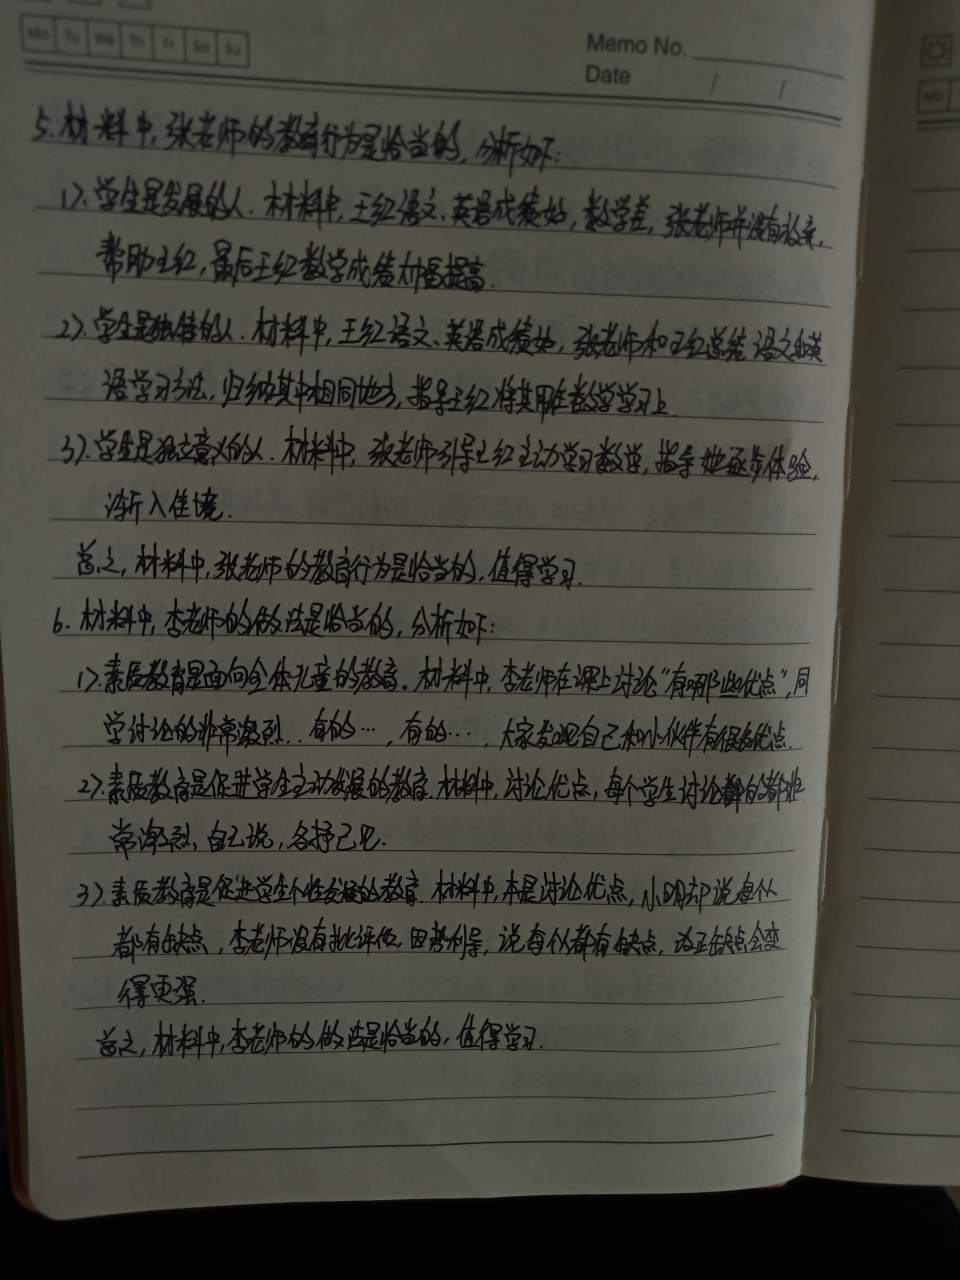 Mo Tu We Th Fr Sa Su
Memo No.
Date / /
5. 材料中,张老师的教育行为是恰当的,分析如下:
1>. 学生是发展的人. 材料中,王红语文、英语成绩好,数学差,张老师并没有放弃,
帮助王红,最后王红数学成绩大幅提高.
2>. 学生是独特的人. 材料中,王红语文、英语成绩好,张老师和王红总结语文和英
语学习方法,归纳其中相同地方,指导王红将其用在数学学习上.
3>. 学生是独立意义的人. 材料中,张老师引导王红主动学习数学,指导她逐步体验,
渐入佳境.
总之,材料中,张老师的教育行为是恰当的,值得学习.
6. 材料中,李老师的做法是恰当的,分析如下:
1>. 素质教育是面向全体儿童的教育. 材料中,李老师在课上讨论“有哪些优点”,同
学讨论的非常激烈. 有的…,有的…,大家发现自己和小伙伴有很多优点.
2>. 素质教育是促进学生主动发展的教育. 材料中,讨论优点,每个学生讨论的都非
常激烈,自己说,各抒己见.
3>. 素质教育是促进学生个性发展的教育. 材料中,本是讨论优点,小明却说每个人
都有缺点,李老师没有批评他,因势利导,说每个人都有缺点,改正缺点会变
得更强.
总之,材料中,李老师的做法是恰当的,值得学习.
Mo